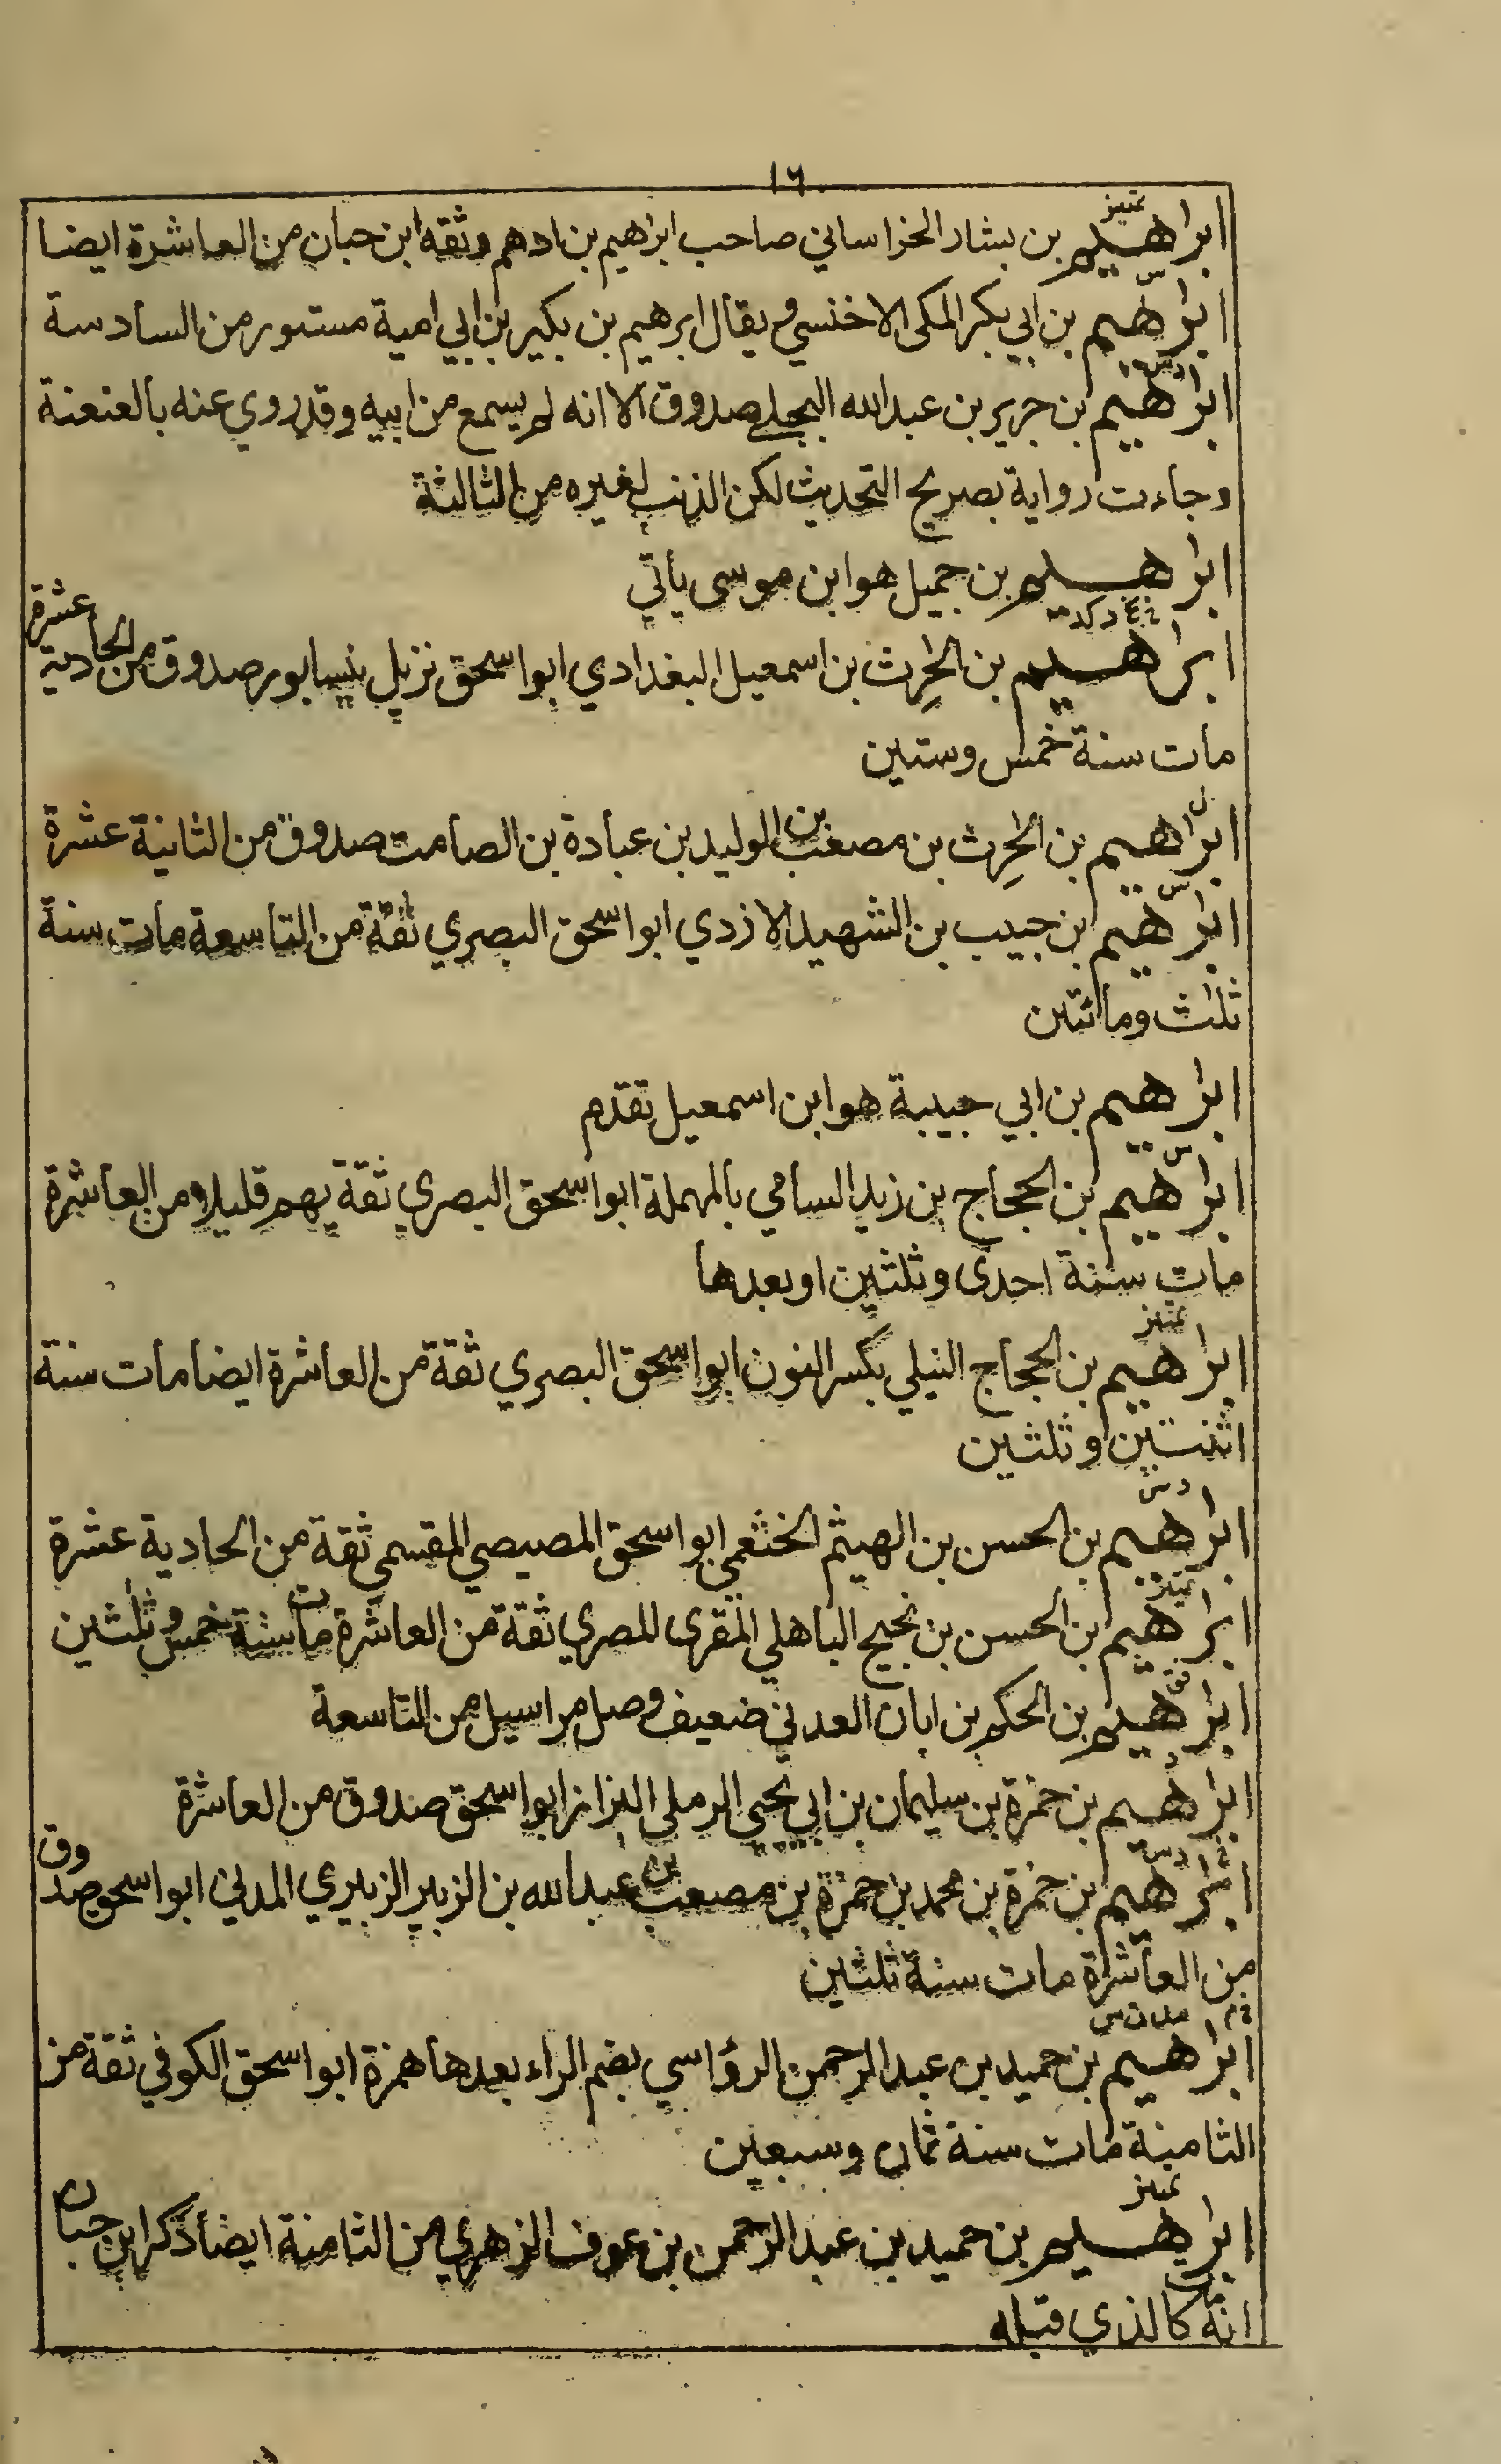 ١٦
تمييز
ابراهيم بن بشار الخراساني صاحب ابراهيم بن ادهم وثقه ابن حبان من العاشرة ايضا
س
ابراهيم بن ابي بكر المكى الاخنسي و يقال ابرهيم بن بكير بن ابي امية مستور من السادسة
دس
ابراهيم بن جرير بن عبدالله البجلي صدوق الا انه لم يسمع من ابيه وقد روي عنه بالعنعنة
وجاءت رواية بصريح التحديث لكن الذنب لغيره من الثالثة
ابراهيم بن جميل هو ابن موسى يأتي
ابراهيم بن الحرث بن اسمعيل البغدادي ابو اسحق نزيل نيسابور صدوق من الحادية عشرة
مات سنة خمس وستين
ل
ابراهيم بن الحرث بن مصعب بن الوليد بن عبادة بن الصامت صدوق من الثانية عشرة
س
ابراهيم بن حبيب بن الشهيد الازدي ابو اسحق البصري ثقة من التاسعة مات سنة
ثلث ومائتين
ابراهيم بن ابي حبيبة هو ابن اسمعيل تقدم
س
ابراهيم بن الحجاج بن زيد السامي بالمهملة ابو اسحق البصري ثقة يهم قليلا من العاشرة
مات سنة احدى وثلثين او بعدها
تمييز
ابراهيم بن الحجاج النيلي بكسر النون ابو اسحق البصري ثقة من العاشرة ايضا مات سنة
اثنتين وثلثين
دس
ابراهيم بن الحسن بن الهيثم الخثعمي ابو اسحق المصيصي المقسمي ثقة من الحادية عشرة
تمييز
ابراهيم بن الحسن بن نجيح الباهلي المقرى المصري ثقة من العاشرة مات سنة خمس وثلثين
فق
ابراهيم بن الحكم بن ابان العدني ضعيف وصل مراسيل من التاسعة
د
ابراهيم بن حمزة بن سليمان بن ابي يحيى الرملي البزاز ابو اسحق صدوق من العاشرة
خ دس
ابراهيم بن حمزة بن محمد بن حمزة بن مصعب بن عبدالله بن الزبير الزبيري المدني ابو اسحق صدوق
من العاشرة مات سنة ثلثين
خ م مدت س
ابراهيم بن حميد بن عبد الرحمن الرؤاسي بضم الراء بعدها همزة ابو اسحق الكوفي ثقة من
الثامنة مات سنة ثمان وسبعين
تمييز
ابراهيم بن حميد بن عبد الرحمن بن عوف الزهري من الثامنة ايضا ذكر ابن حبان
انه مات كالذي قبله